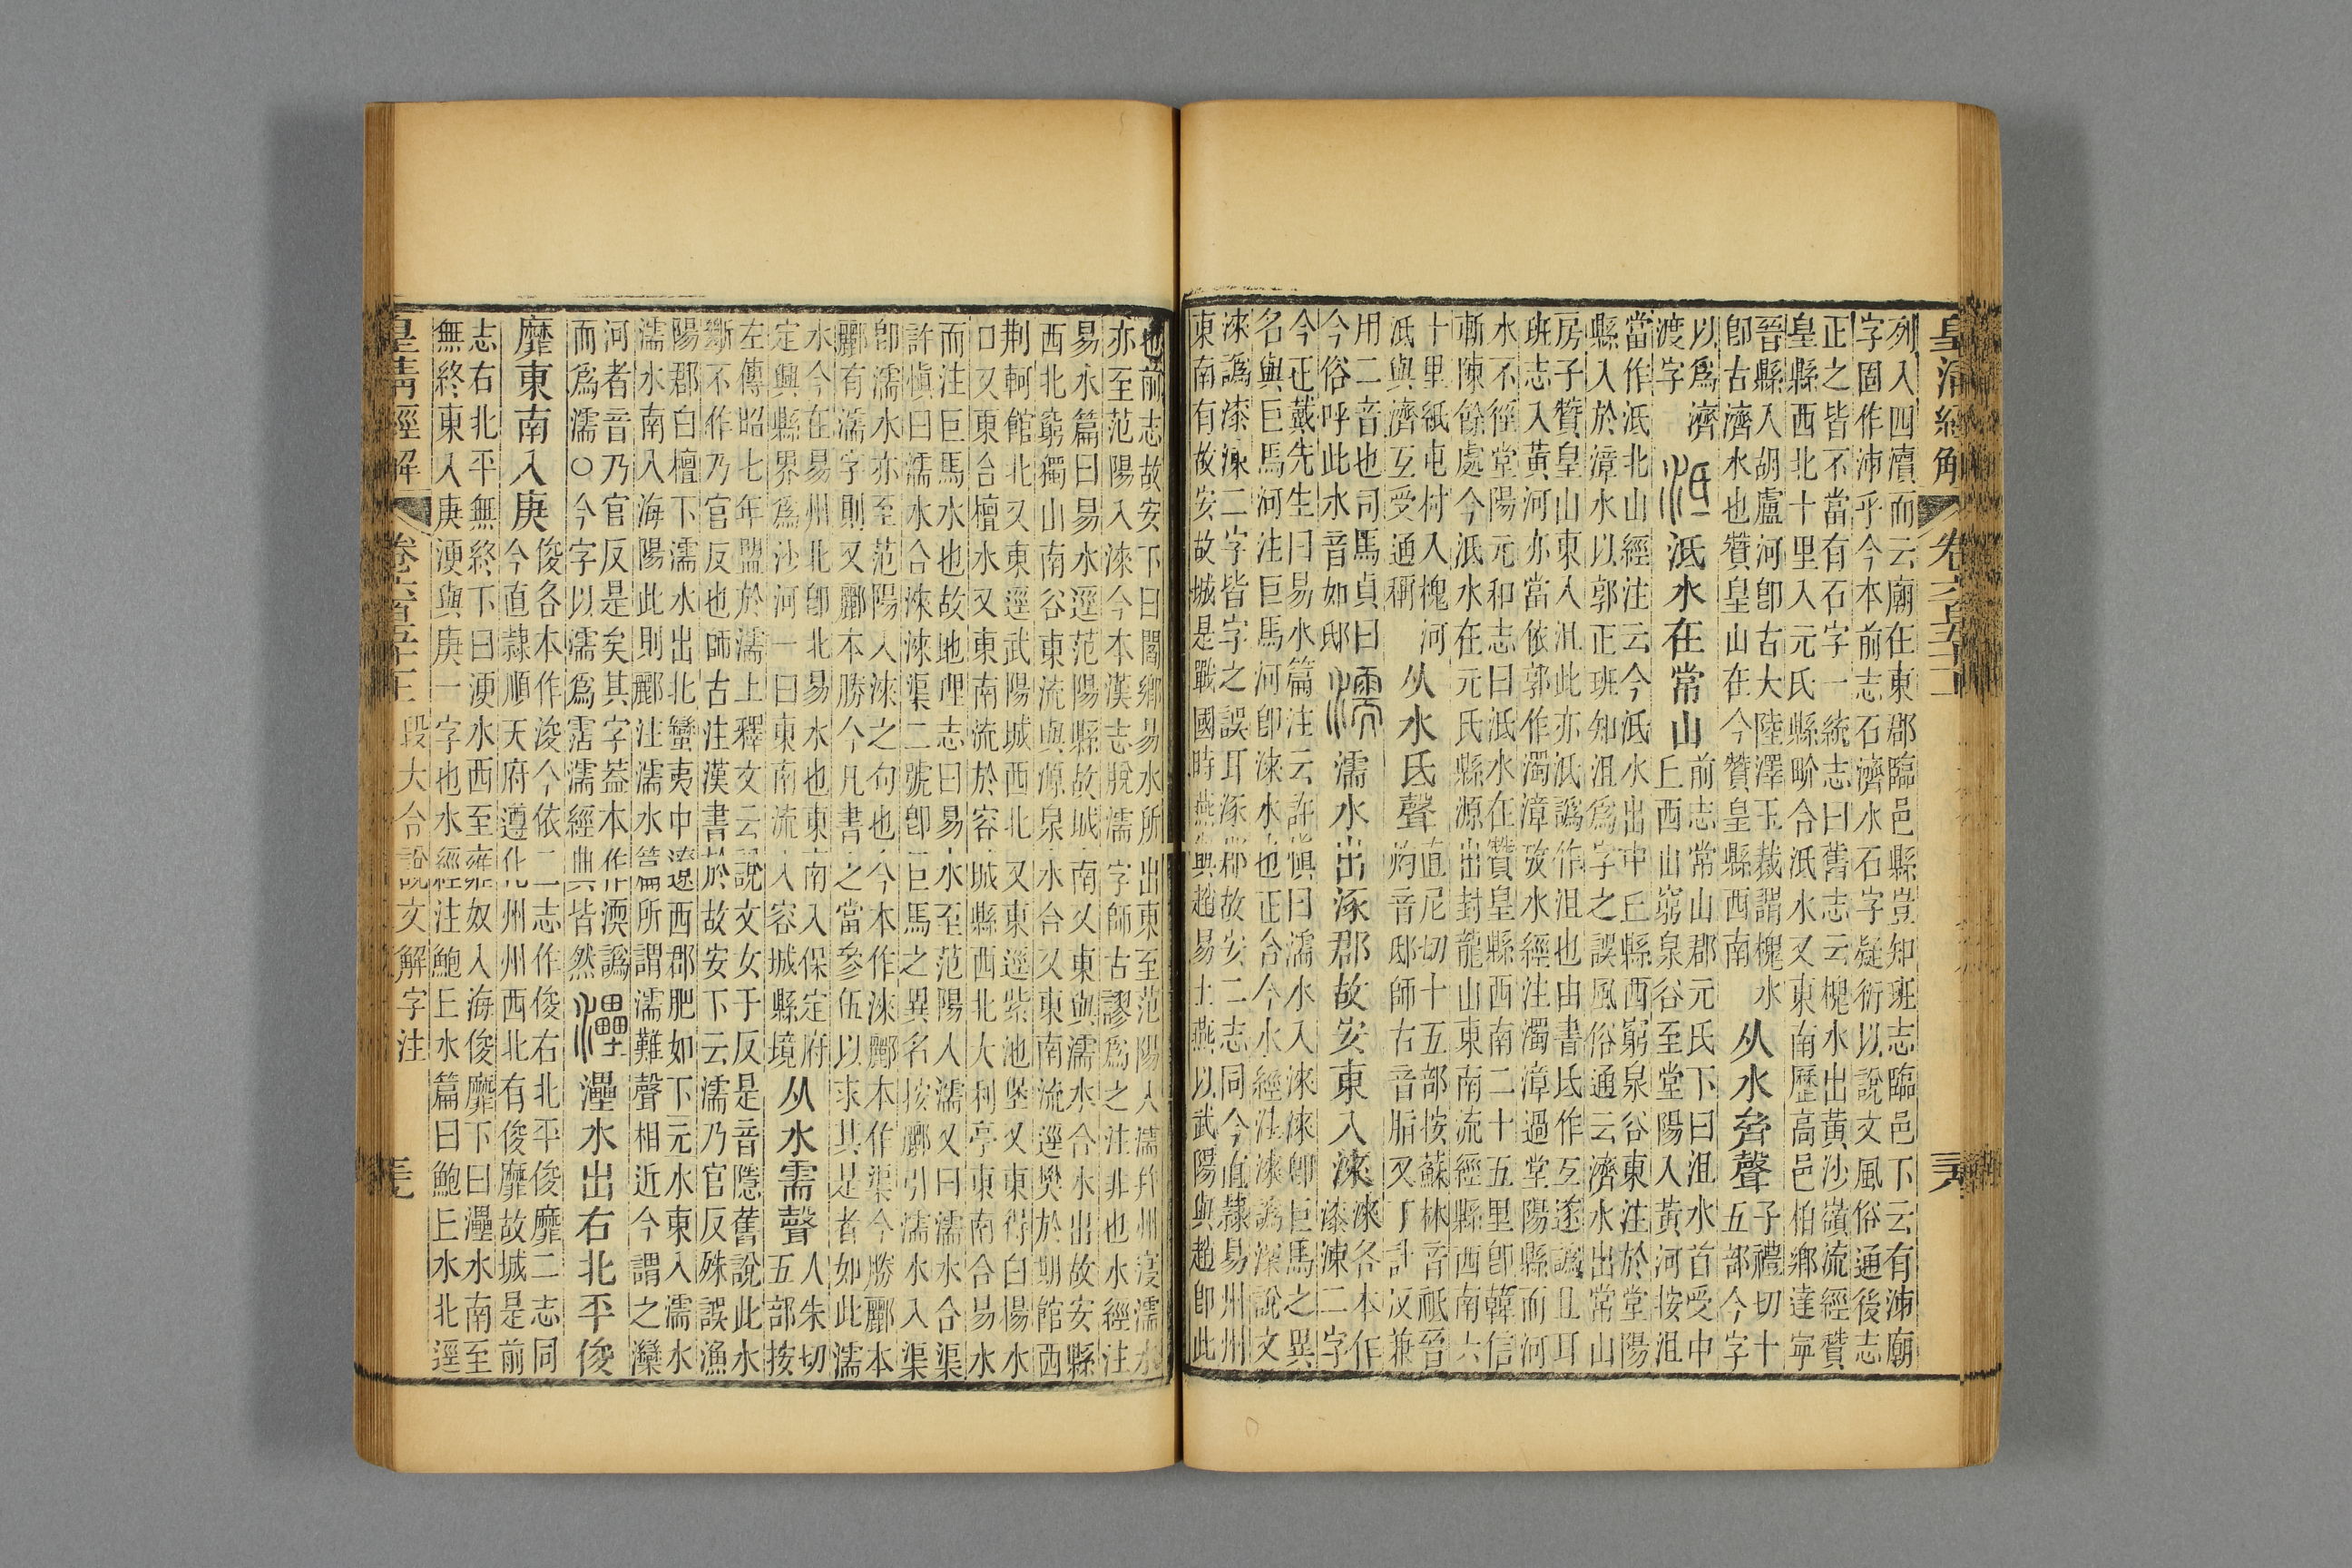 皇清經解 卷六百五十一
列入四瀆而云廟在東郡臨邑縣豈知班志臨邑下云有泲廟
字固作泲乎今本前志石濟水石字疑衍以說文風俗通後志
正之皆不當有石字一統志曰舊志云槐水出黃沙嶺流經贊
皇縣西北十里入元氏縣畍合泜水又東南歷高邑柏鄉達寧
晉縣入胡盧河卽古大陸澤玉裁謂槐水
卽古濟水也贊皇山在今贊皇縣西南
从水𠫼聲
子禮切十
五部今字
以爲濟
渡字
泜 泜水在常山
前志常山郡元氏下曰沮水首受中
丘西山窮泉谷至堂陽入黃河按沮
當作泜北山經注云今泜水出中丘縣西窮泉谷東注於堂陽
縣入於漳水以郭正班知沮爲字之誤風俗通云濟水出常山
房子贊皇山東入沮此亦泜譌作沮也由書氐作互遂譌且耳
班志入黃河亦當依郭作濁漳攷水經注濁漳過堂陽縣而河
水不徑堂陽元和志曰泜水在贊皇縣西南二十五里卽韓信
斬陳餘處今泜水在元氏縣源出封龍山東南流經縣西南六
十里紙屯村入槐河
泜與濟互受通稱
从水氐聲
直尼切十五部按蘇林音祗晉
灼音邸師古音脂又丁計反兼
用二音也司馬貞曰
今俗呼此水音如邸
濡 濡水出涿郡故安東入淶
淶各本作
漆涑二字
今正戴先生曰易水篇注云許愼曰濡水入淶淶卽巨馬之異
名與巨馬河注巨馬河卽淶水也正合今水經注漆譌深說文
淶譌漆涑二字皆字之誤耳涿郡故安二志同今直隸易州州
東南有故安故城是戰國時燕與趙易土燕以武陽與趙卽此
也前志故安下曰閻鄉易水所出東至范陽入濡幷州寑濡水
亦至范陽入淶今本漢志脫濡字師古謬爲之注非也水經注
易水篇曰易水逕范陽縣故城南又東與濡水合水出故安縣
西北窮獨山南谷東流與源泉水合又東南流逕樊於期館西
荆軻館北又東逕武陽城西北又東逕紫池堡又東得白陽水
口又東合檀水又東南流於容城縣西北大利亭東南合易水
而注巨馬水也故地理志曰易水至范陽入濡又曰濡水合渠
許愼曰濡水合淶淶渠二號卽巨馬之異名按酈引濡水入渠
卽濡水亦至范陽入淶之句也今本作淶酈本作渠今勝酈本
酈有濡字則又酈本勝今凡書之當參伍以求其是者如此濡
水今在易州北卽北易水也東南入保定府
定興縣界爲沙河一曰東南流入容城縣境
从水需聲
人朱切
五部按
左傳昭七年盟於濡上釋文云說文女于反是音隱舊說此水
斷不作乃官反也師古注漢書於故安下云濡乃官反殊誤漁
陽郡白檀下濡水出北蠻夷中遼西郡肥如下元水東入濡水
濡水南入海陽此則酈注濡水篇所謂濡難聲相近今謂之灤
河者音乃官反是矣其字葢本作渜譌
而爲濡○今字以濡爲霑濡經典皆然
灅 灅水出右北平俊
靡東南入庚
俊各本作浚今依二志作俊右北平俊靡二志同
今直隸順天府遵化州州西北有俊靡故城是前
志右北平無終下曰浭水西至雍奴入海俊靡下曰灅水南至
無終東入庚浭與庚一字也水經注鮑丘水篇曰鮑丘水北逕
皇清經解 卷六百五十一 段大令說文解字注